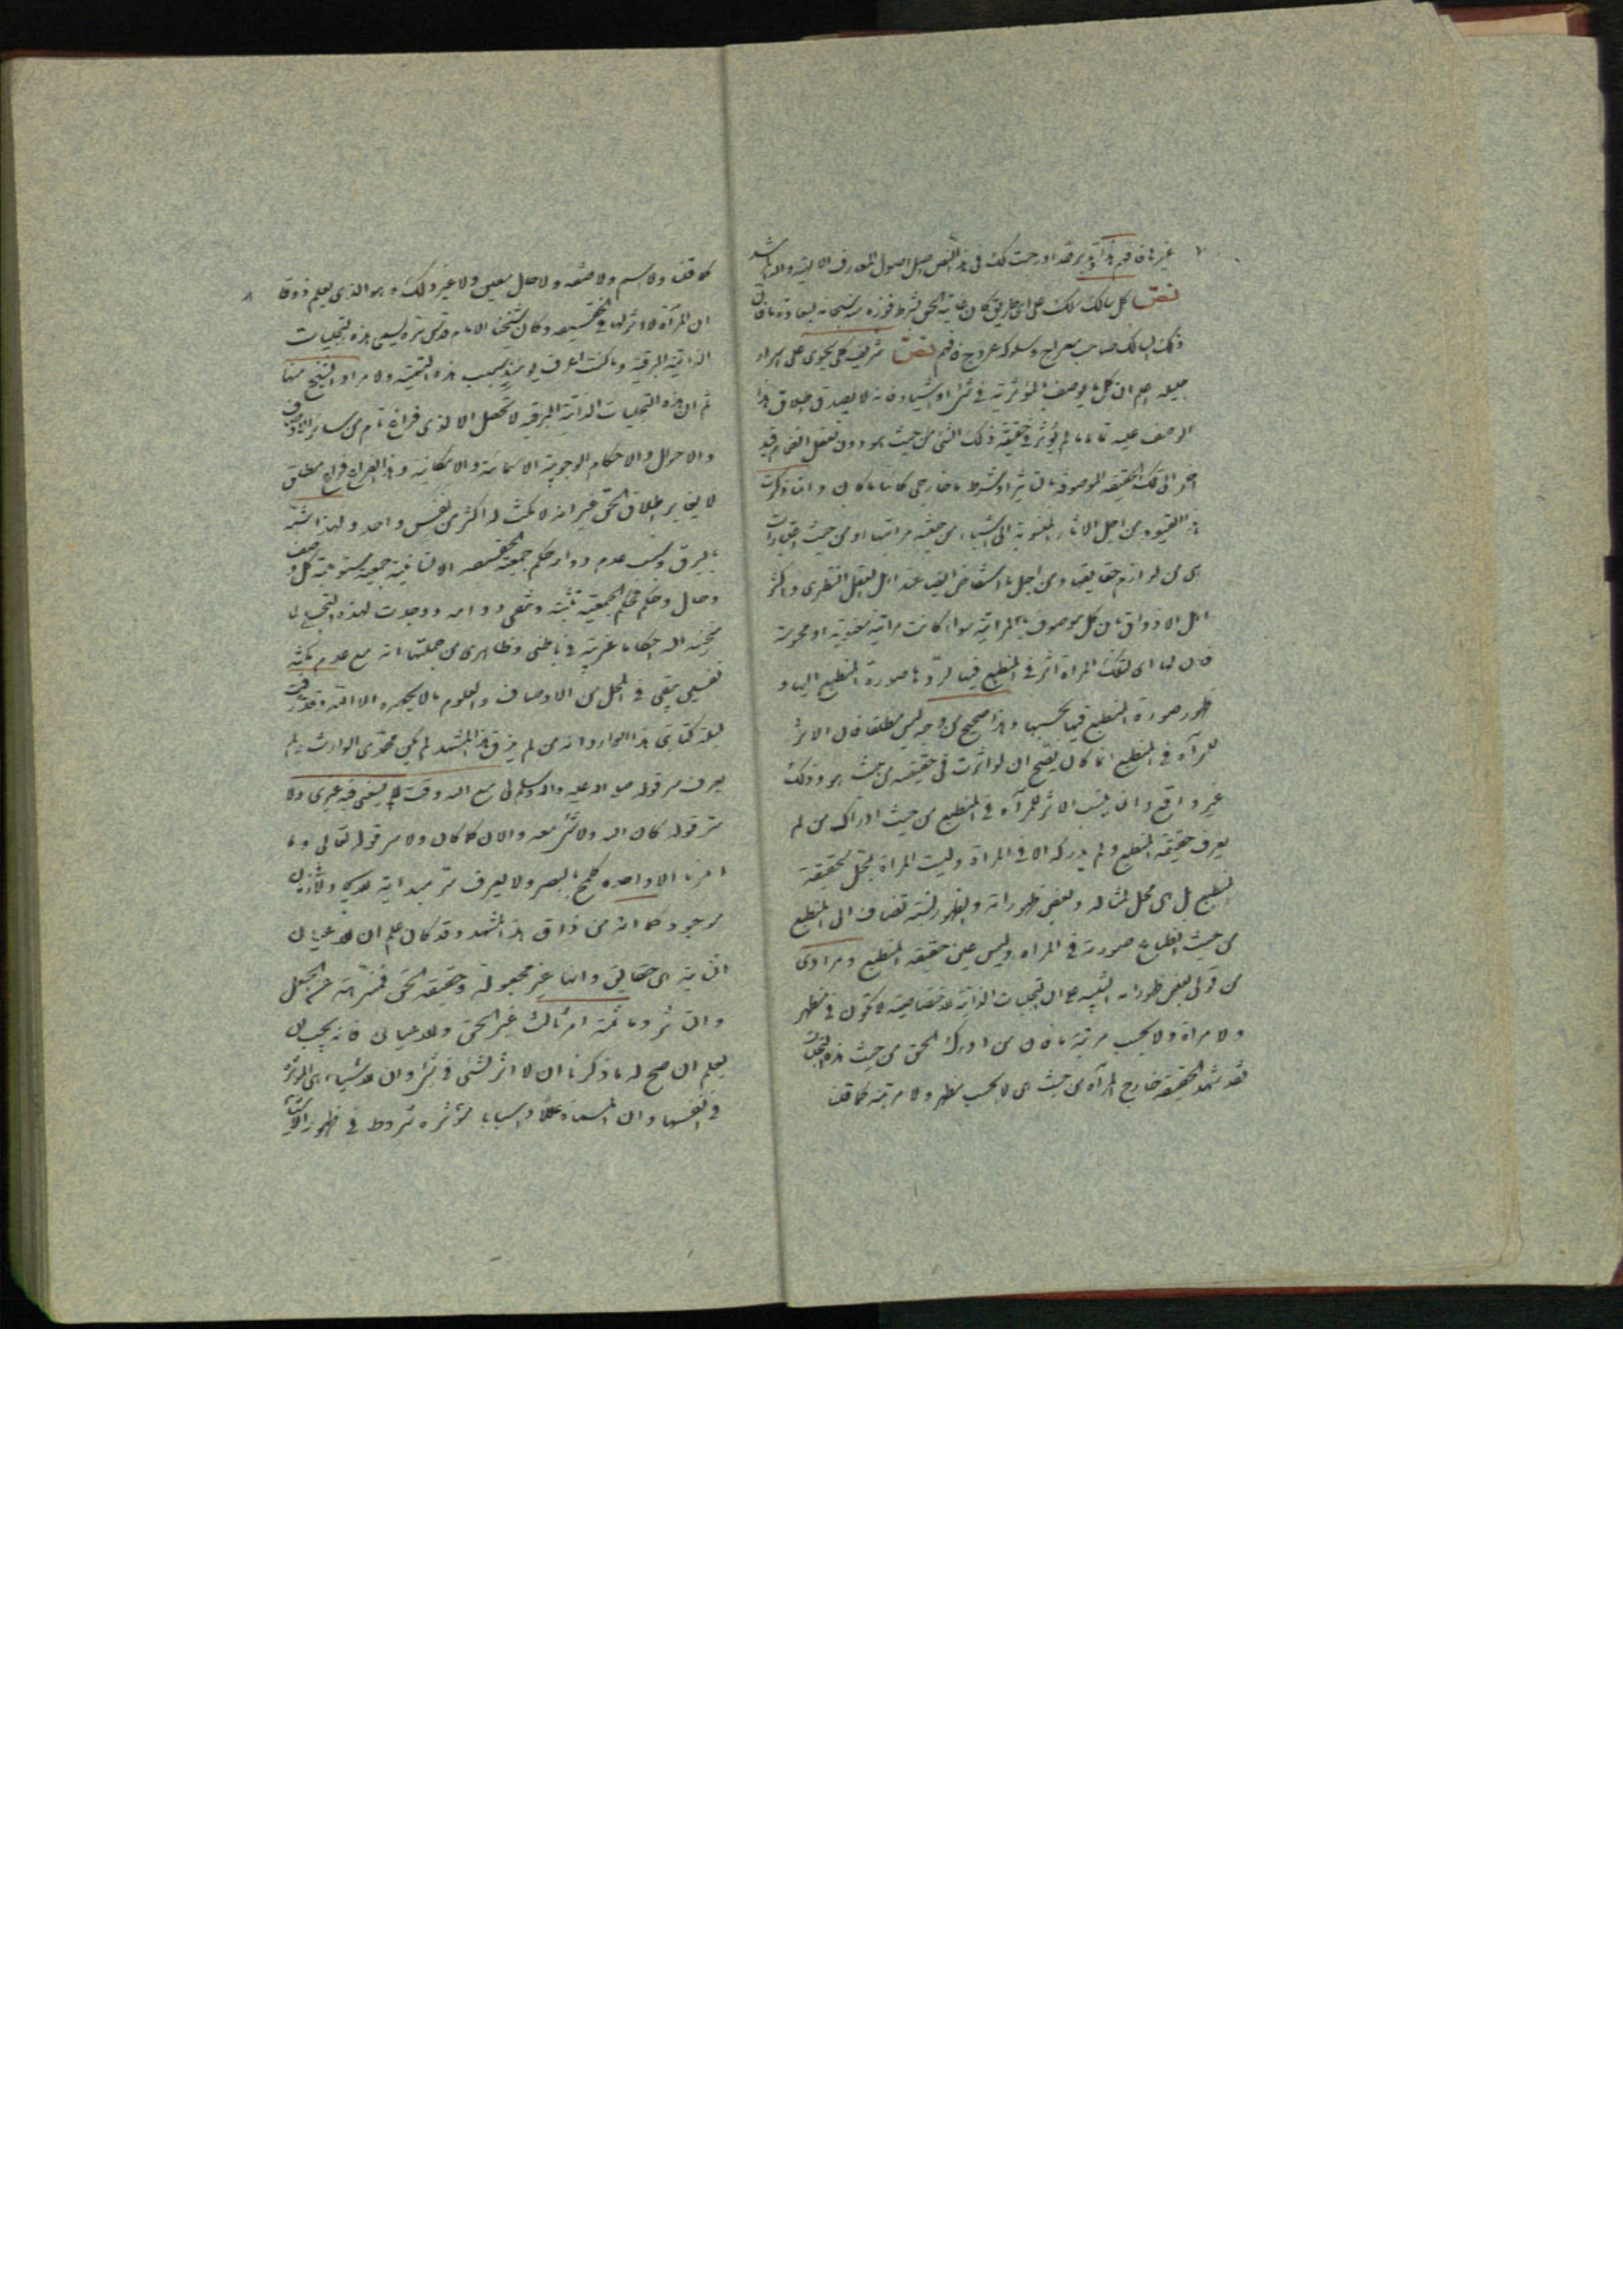 غيرها فافهم هذا وتدبر فقد ادرجت لك فى هذا النص اصل اصول المعارف الالهية والله المرشد
نص كل سالك سلك على اى طريق كان غايته الحق بشرط فوزه منه سبحانه بسعادة ما فان
ذلك السالك صاحب معراج وسلوكه عروج فافهم نص شريف كلى يحوى على اسرار
جليلة اعلم ان كل ما يوصف بالمؤثرية فى شئ او اشياء فانه لا يصدق اطلاق هذا
الوصف عليه تاما ما لم يؤثر فى حقيقة ذلك الشئ من حيث هو دون تعقل انضمام قيد
آخر الى تلك الحقيقة الموصوفة بالتاثير او شرط ما خارجى كائنا ما كان وانما ذكرت
هذا القيود من اجل الاثار المنسوبة الى الاشياء من حيث مراتبها او من حيث اعتبارات
هى من لوازم حقايقها ومن اجل ما استفاض ايضا عند اهل العقل النظرى واكثر
اهل الاذواق بان كل موصوف بالمرآتية سواء كانت مرآتية معنوية او محسوسة
فان لها اى لتلك المرآة اثر فى المنطبع فيها لردها صورة المنطبع اليها و
ظهور صورة المنطبع فيها بحسبها وهذا صحيح من وجه ليس مطلقا فان الاثر
للمرآه فى المنطبع انما كان يصح ان لو اثرت فى حقيقته من حيث هو وذلك
غير واقع وانما ينسب الاثر للمرآه فى المنطبع من حيث ادراك من لم
يعرف حقيقة المنطبع ولم يدركه الا فى المرآة وليست المرآة بمحل لحقيقة
المنطبع بل هى محل لمثاله وبعض ظهوراته والظهور نسبة تضاف الى المنطبع
من حيث انطباع صورته فى المرآه وليس عين حقيقة المنطبع ومرادى
من قولى بعض ظهوراته التنبيه على ان التجليات الذاتية الاختصاصية لا تكون فى مظهر
ولا مرآة ولا بحسب مرتبة ما فان من ادرك الحق من حيث هذه التجليات
فقد شهد الحقيقة خارج المرآه من حيث هى لا بحسب مظهر ولا مرتبة كما قلنا
كما قلنا ولا اسم ولا صفة ولا حال معين ولا غير ذلك وهو الذى يعلم ذوقا
ان المرآة لا اثر لها فى الحقيقة وكان شيخنا الامام قدس سره يسمى هذه التجليات
الذاتية البرقية وما كنت اعرف يومئذ سبب هذه التسمية ولا مراد الشيخ منها
ثم ان هذه التجليات الذاتية البرقية لا تحصل الا لذى فراغ تام من سائر الاوصاف
والاحوال والاحكام الوجوبية الاسمائية والامكانية وهذا الفراغ فراغ مطلق
لا يغاير اطلاق الحق غير انه لا يمكث له اكثر من نفس واحد ولهذا شبه
بالبرق وسبب عدم دوام حكم جمعية الحقيقة الانسانية جمعية مستوعبة كل وصف
وحال وحكم فحكم الجمعية تثبته وتنفى دوامه ووجدت لهذه التجلى لى
منحنيه الله احكاما غريبة فى باطنى وظاهرى من جملتها انه مع عدم مكثه
نفسين يبقى فى المحل من الاوصاف والعلوم ما لا يحصره الا الله وقد عرفت
ليلة كتابتى هذا الوارد انه من لم يذق هذا المشهد لم يكن محمدى الوارث ولم
يعرف سر قوله صلى الله عليه وآله وسلم لى مع الله وقت لا يسعنى فيه غيرى ولا
سر قوله كان الله ولا شئ معه والان كما كان ولا سر قوله تعالى وما
امرنا الا واحدة كلمح بالبصر ولا يعرف سر مبدائية
موجود كما انه من ذاق هذا المشهد وقد كان علم ان الاعيان
الثابتة هى حقايق وانها غير مجعولة وحقيقة الحق فمنزهة عن الجعل
والتاثر وما ثمة امر ثالث غير الحق والاعيان فانه يجب ان
يعلم ان صح له ما ذكرنا ان لا اثر لشئ فى شئ وان الاشياء هى المؤثرة
فى انفسها وان المسماة عللا واسبابا مؤثره شروط فى ظهور الاشياء